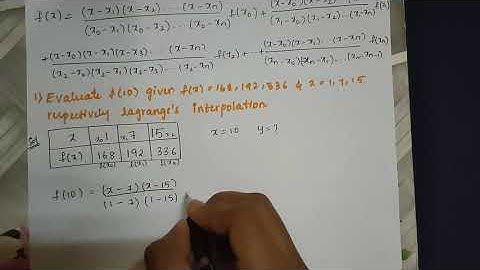 f(x) = (x-x1)(x-x2)...(x-xn) / (x0-x1)(x0-x2)...(x0-xn) f(x0) + (x-x0)(x-x2)...(x-xn) / (x1-x0)(x1-x2)...(x1-xn) f(x1)
+ (x-x0)(x-x1)(x-x3)...(x-xn) / (x2-x0)(x2-x1)(x2-x3)...(x2-xn) f(x2) + ... + (x-x0)(x-x1)...(x-xn-1) / (xn-x0)(xn-x1)...(xn-xn-1) f(xn)
1) Evaluate f(10) given f(x) = 168, 192, 336 & x = 1, 7, 15
respectively lagrange's Interpolation
x x0 1 x1 7 15 x2 x = 10 y = ?
f(x) 168 192 336
f(x0) f(x1) f(x2)
f(10) = (x-7)(x-15) / (1-7)(1-15)